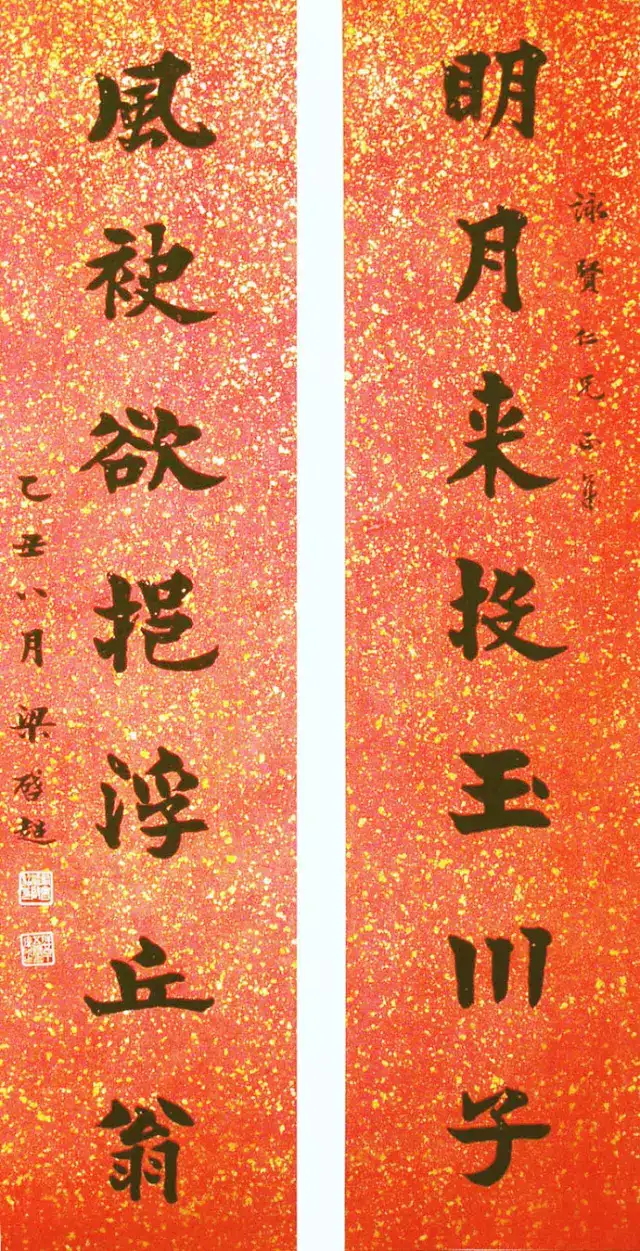 詠賢仁兄正
明月来投玉川子
風袂欲挹浮丘翁
乙丑八月梁啓超